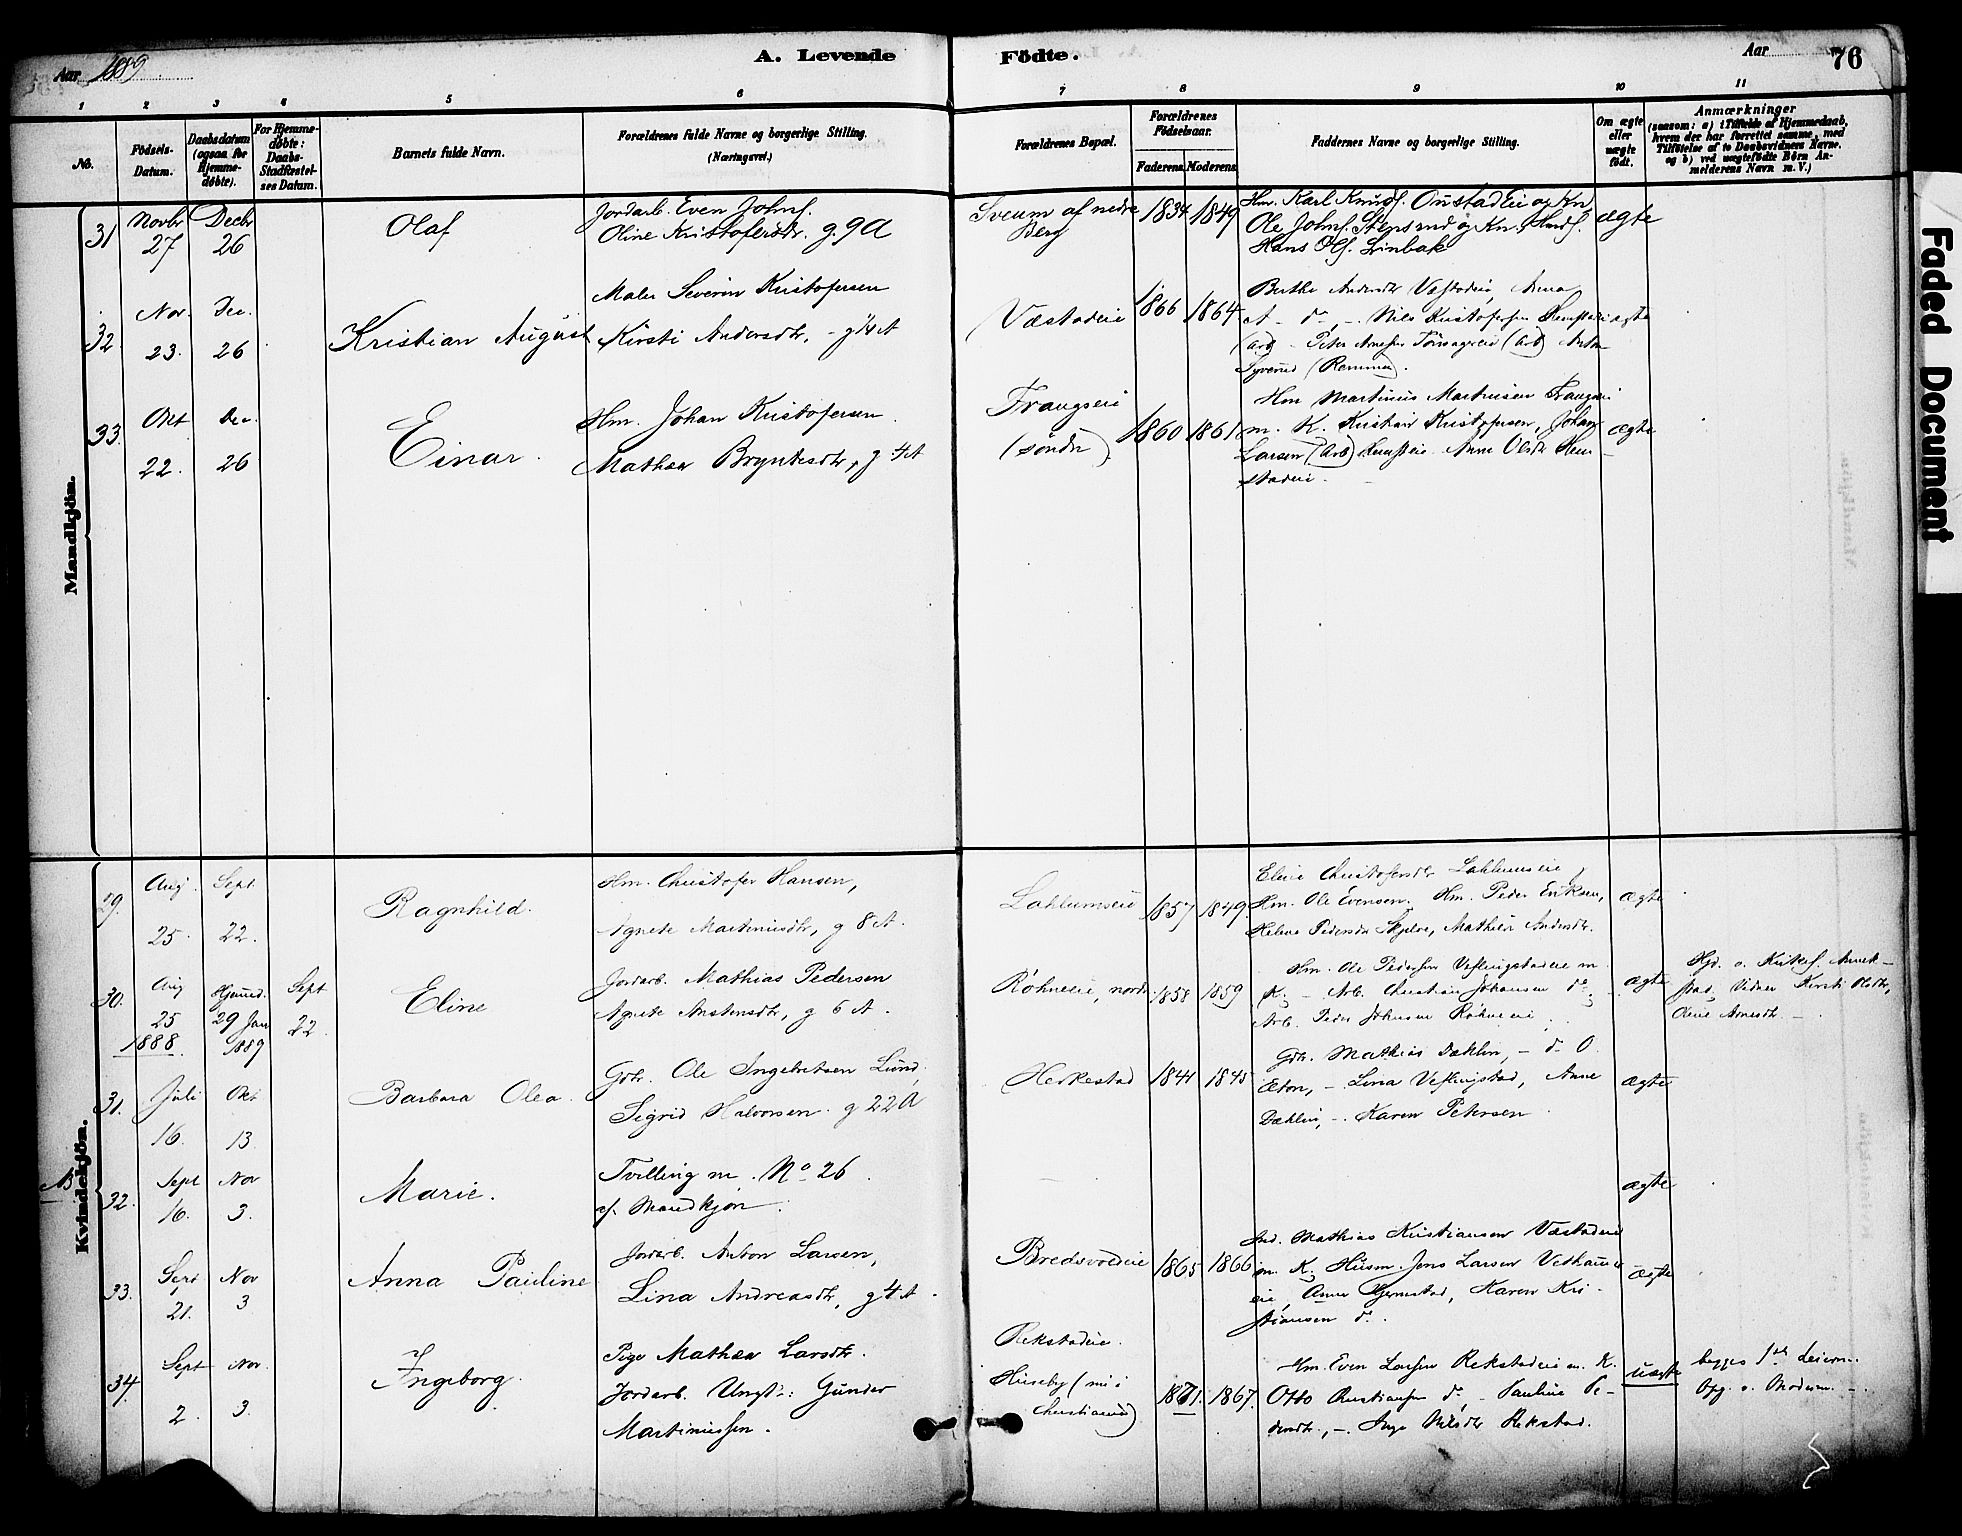 Aar 1889
A. Levende Födte.
Aar
76
1 2 3 4 5 6 7 8 9 10 11
No.
Födsels-Datum.
Daabsdatum (ogsaa for Hjemme-döbte).
For Hjemme-döbte: Daabs-Stadfæstel-ses Datum.
Barnets fulde Navn.
Forældrenes fulde Navne og borgerlige Stilling.
(Næringsvei.)
Forældrenes Bopæl.
Forældrenes Födselsaar.
Faderens. Moderens.
Faddernes Navne og borgerlige Stilling.
Om ægte eller uægte födt.
Anmærkninger
(saasom: a) i Tilfælde af Hjemmedaab, hvem der har forrettet samme, med Tilföielse af to Daabsvidners Navne, og b) ved uægtefödte Börn An-melderens Navn m. V.)
Mandkjön.
31 Novbr 27 Decbr 26
Olaf
Jordarb. Even Johns.
Oline Kristofersdtr. g. 9 A
Sveum af nedre Berg
1834 1849
Hm. Karl Knuds. Onstadei og Kn
Ole Johns. Stensrud og Kn,
Hans Ols. Linbak
ægte
32. Nov. 23. Dec. 26
Kristian August
Maler Severin Kristofersen
Kirsti Andersdtr, - g 4 A
Væstadeie
1866 1864
Berthe Andersdtr Væstadeie, Anna
A - do, - Nils Kristofersen
(arb) - Peter (arb) Anton
ægte
33. Okt 22. Dec. 26
Einar.
Hm. Johan Kristofersen
Mathea Bryntesdtr, g 4 A
Frangseie
(søndr)
1860 1861
Hm Martinius Martinsen Frangsei
m. K. Kristian Kristofersen, Johan
Larsen (Arb) Anne Olsdtr Hem-
stadeie.
ægte
Kvindekjön.
29. Aug. 25. Sept. 22.
Ragnhild.
Hm. Christofer Hansen,
Agnete Martiniusdtr, g 8 A.
Lahlumseie
1857 1849.
Eline Christofersdtr Lahlumseie,
Hm. Ole Evensen. Hm. Peder Eriksen,
Helene Pedersdtr Skjelve, Mathea Andersdtr.
ægte
30. Aug 25 1888. Hjemmed. 29 Jan 1889 Sept 22
Eline
Jordarb. Mathias Pedersen
Agnete Anstensdtr, g 6 A.
Røhneeie, nordr.
1858 1859
Hm. Ole Pedersen Veflingstadeie m.
K. - Arb. Christian Johansen do
Arb. Peder Johnsen Røhneeie
ægte
Hjd. v. Kristof.
Vidner Kirsti Olsdtr,
Oline Arnesdtr.
31. Juli 16. Okt 13.
Barbara Olea.
Gdr. Ole Ingebretsen Lund,
Sigrid Halvorsen. g 22 A
Herkestad
1844 1845
Gdr. Mathias Dæhlin, - do O.
- Lina Veflingstad, Anne
Dæhlin, - Karen Petersen
ægte
NB
32. Sept 16. Nov 3.
Marie.
Tvilling m. No 26
af Mandkjøn
ægte
33. Sept 21. Nov 3
Anna Pauline
Jordarb. Anton Larsen,
Lina Andreasdtr, g 4 A.
Bredsvoldeie
1865 1866
Ind. Mathias Kristiansen Væstadeie
m. K. Husm. Jens Larsen
eie, Anne Gjernestad, Karen Kri-
stiansen do.
ægte
34. Sept 2. Nov. 3.
Ingeborg.
Pige Mathea Larsdtr.
Jordarb. Ungk.: Gunder
Martiniussen.
Rekstadeie.
Huseby (nu i
Christiania)
1871. 1867.
Hm. Even Larsen Rekstadeie m. K.
Otto Kristiansen do, - Pauline Pe-
dersdtr., - Inge Nilsdtr Rekstad.
uægte
begges 1ste Leierm.
Opg. v. Moderen.
Faded Document